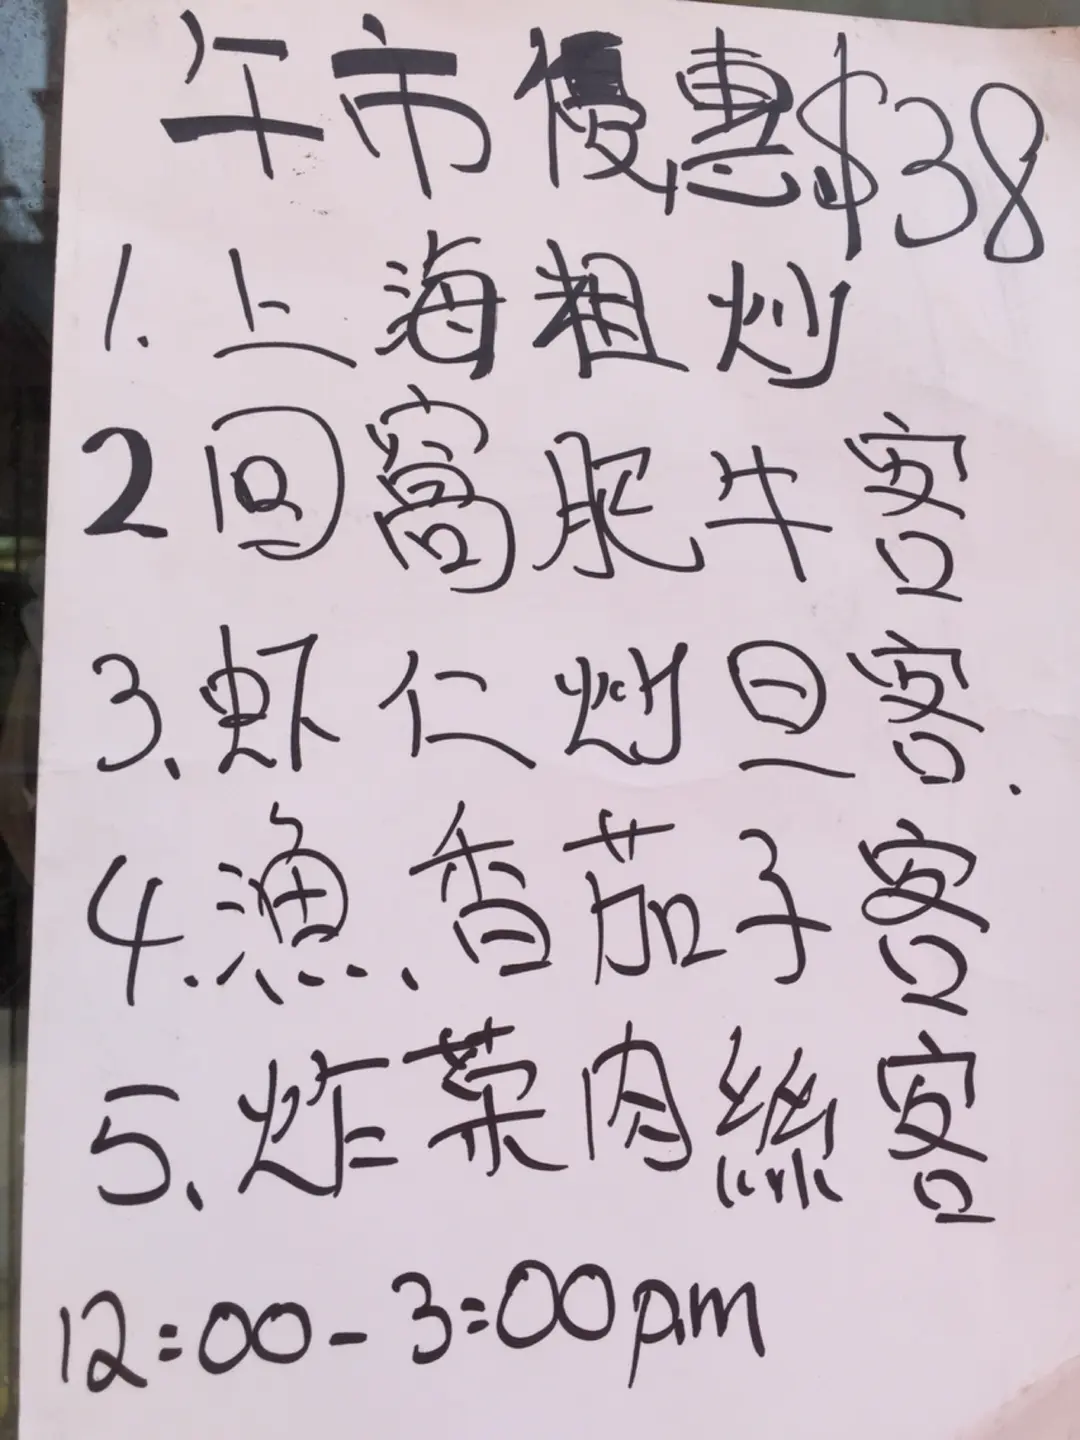 午市優惠$38
1.上海粗炒
2回窩肥牛客
3、虾仁炒旦客.
4.漁、香茄子客
5、炸菜肉絲客
12:00-3:00pm